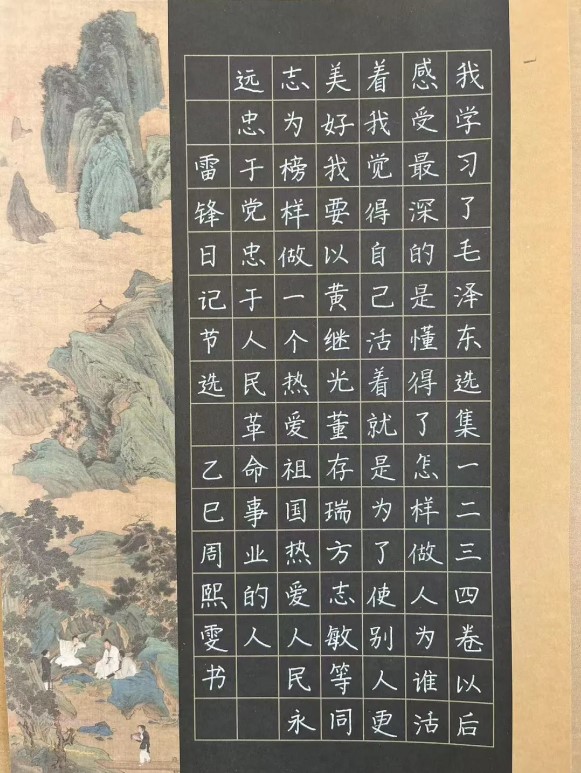 我学习了毛泽东选集一二三四卷以后
感受最深的是懂得了怎样做人为谁活
着我觉得自己活着就是为了使别人更
美好我要以黄继光董存瑞方志敏等同
志为榜样做一个热爱祖国热爱人民永
远忠于党忠于人民革命事业的人
雷锋日记节选 乙巳周熙雯书